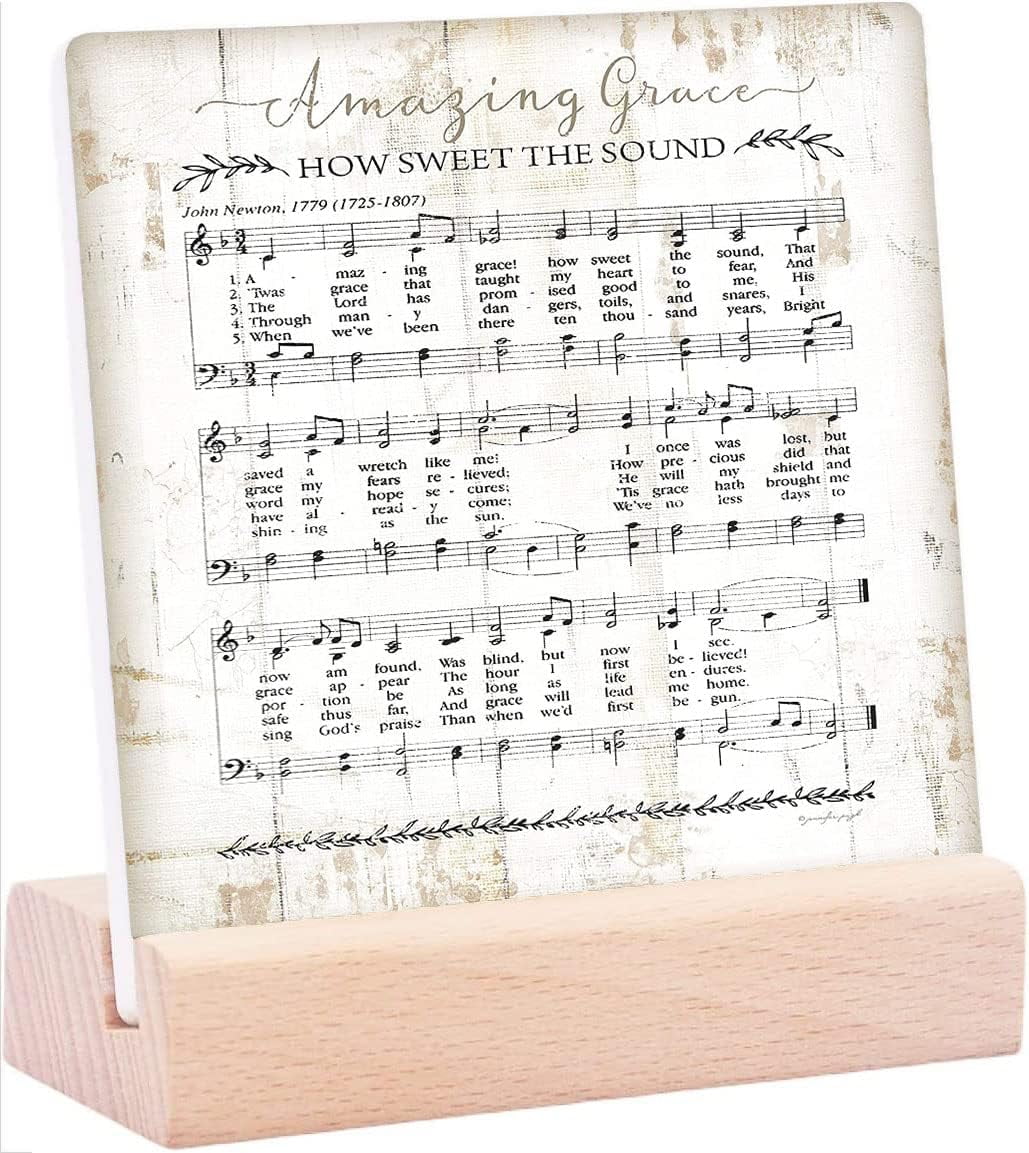 Amazing Grace
HOW SWEET THE SOUND
John Newton, 1779 (1725-1807)
1. A - maz - ing grace! how sweet the sound, That
2. 'Twas grace that taught my heart to fear, And
3. The Lord has prom - ised good to me, His
4. Through man - y dan - gers, toils, and snares, I
5. When we've been there ten thou - sand years, Bright
saved a wretch like me! I once was lost, but
grace my fears re - lieved; How pre - cious did that
word my hope se - cures; He will my shield and
have al - read - y come; 'Tis grace hath brought me
shin - ing as the sun. We've no less days to
now am found, Was blind, but now I see.
grace ap - pear The hour I first be - lieved!
por - tion be As long as life en - dures.
safe thus far, And grace will lead me home.
sing God's praise Than when we'd first be - gun.